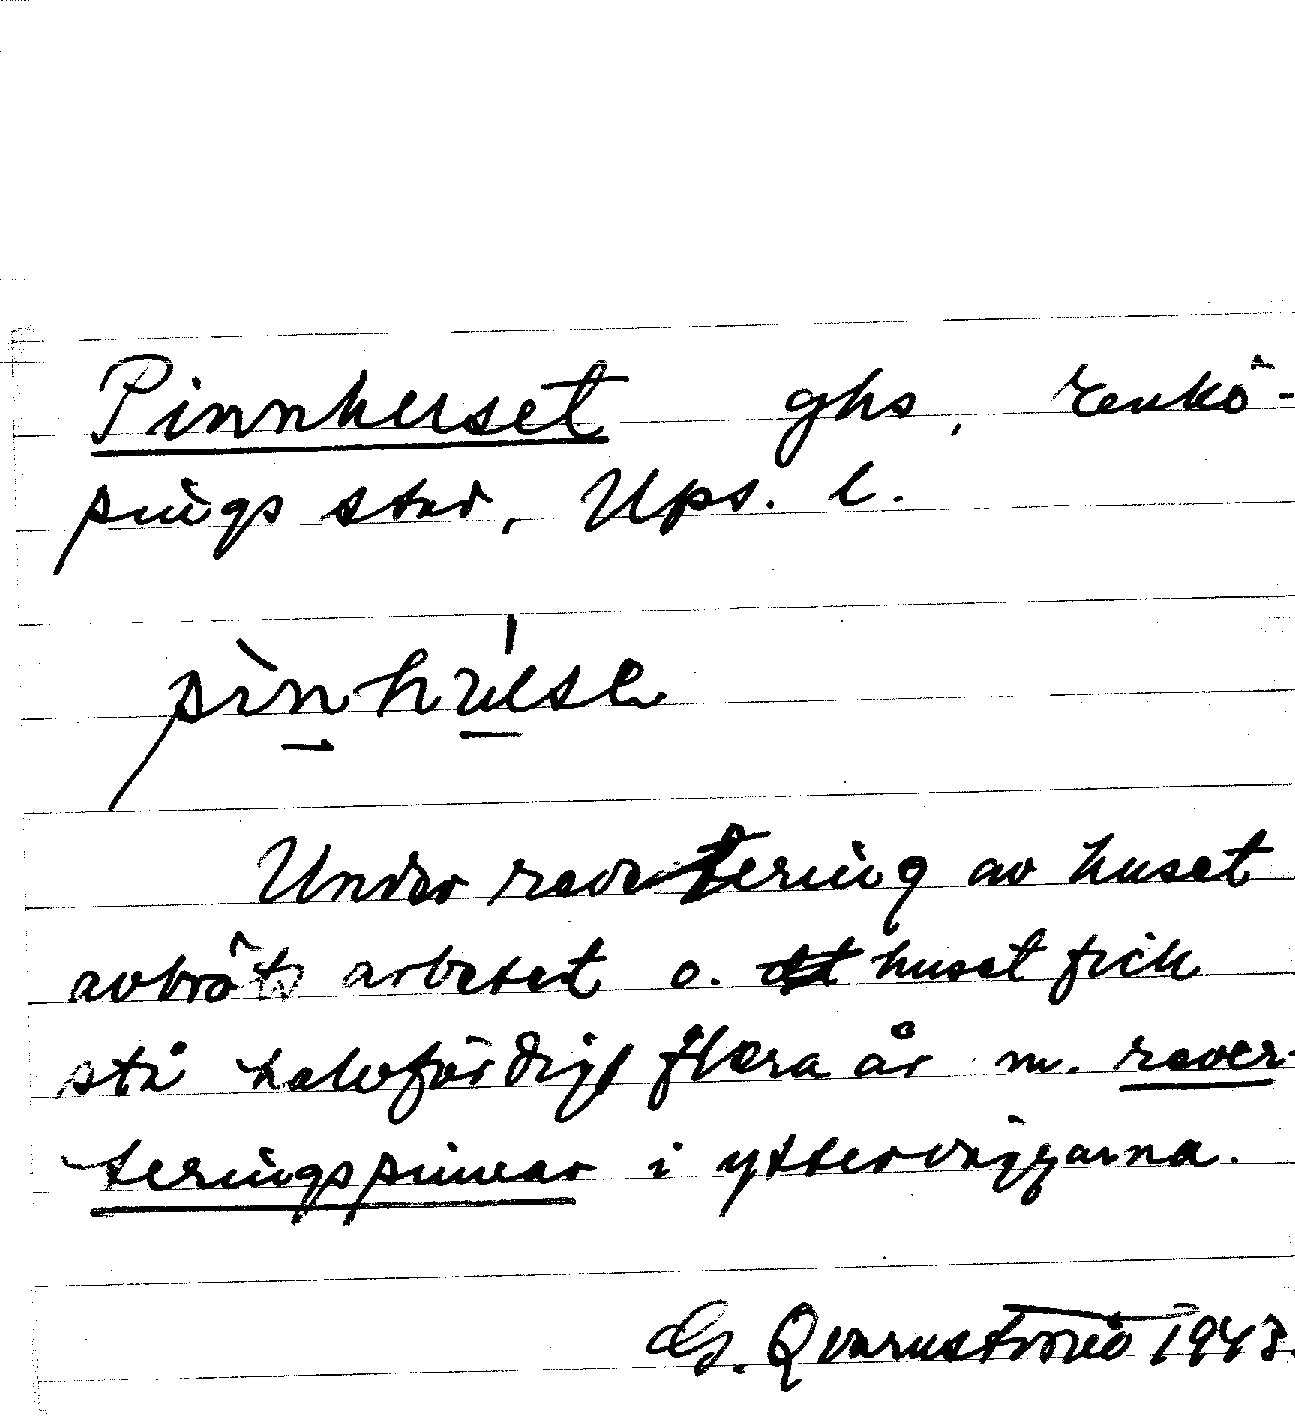 Pinnhuset ghs, Enkö-
pings stad, Ups. l.
pìnhú̱se
Under reveterning av huset
avbröts arbetet o. huset fick
stå halvfärdigt flera år m. rever-
teringspinnar i ytterväggarna.
G. Qvarnström 1943.